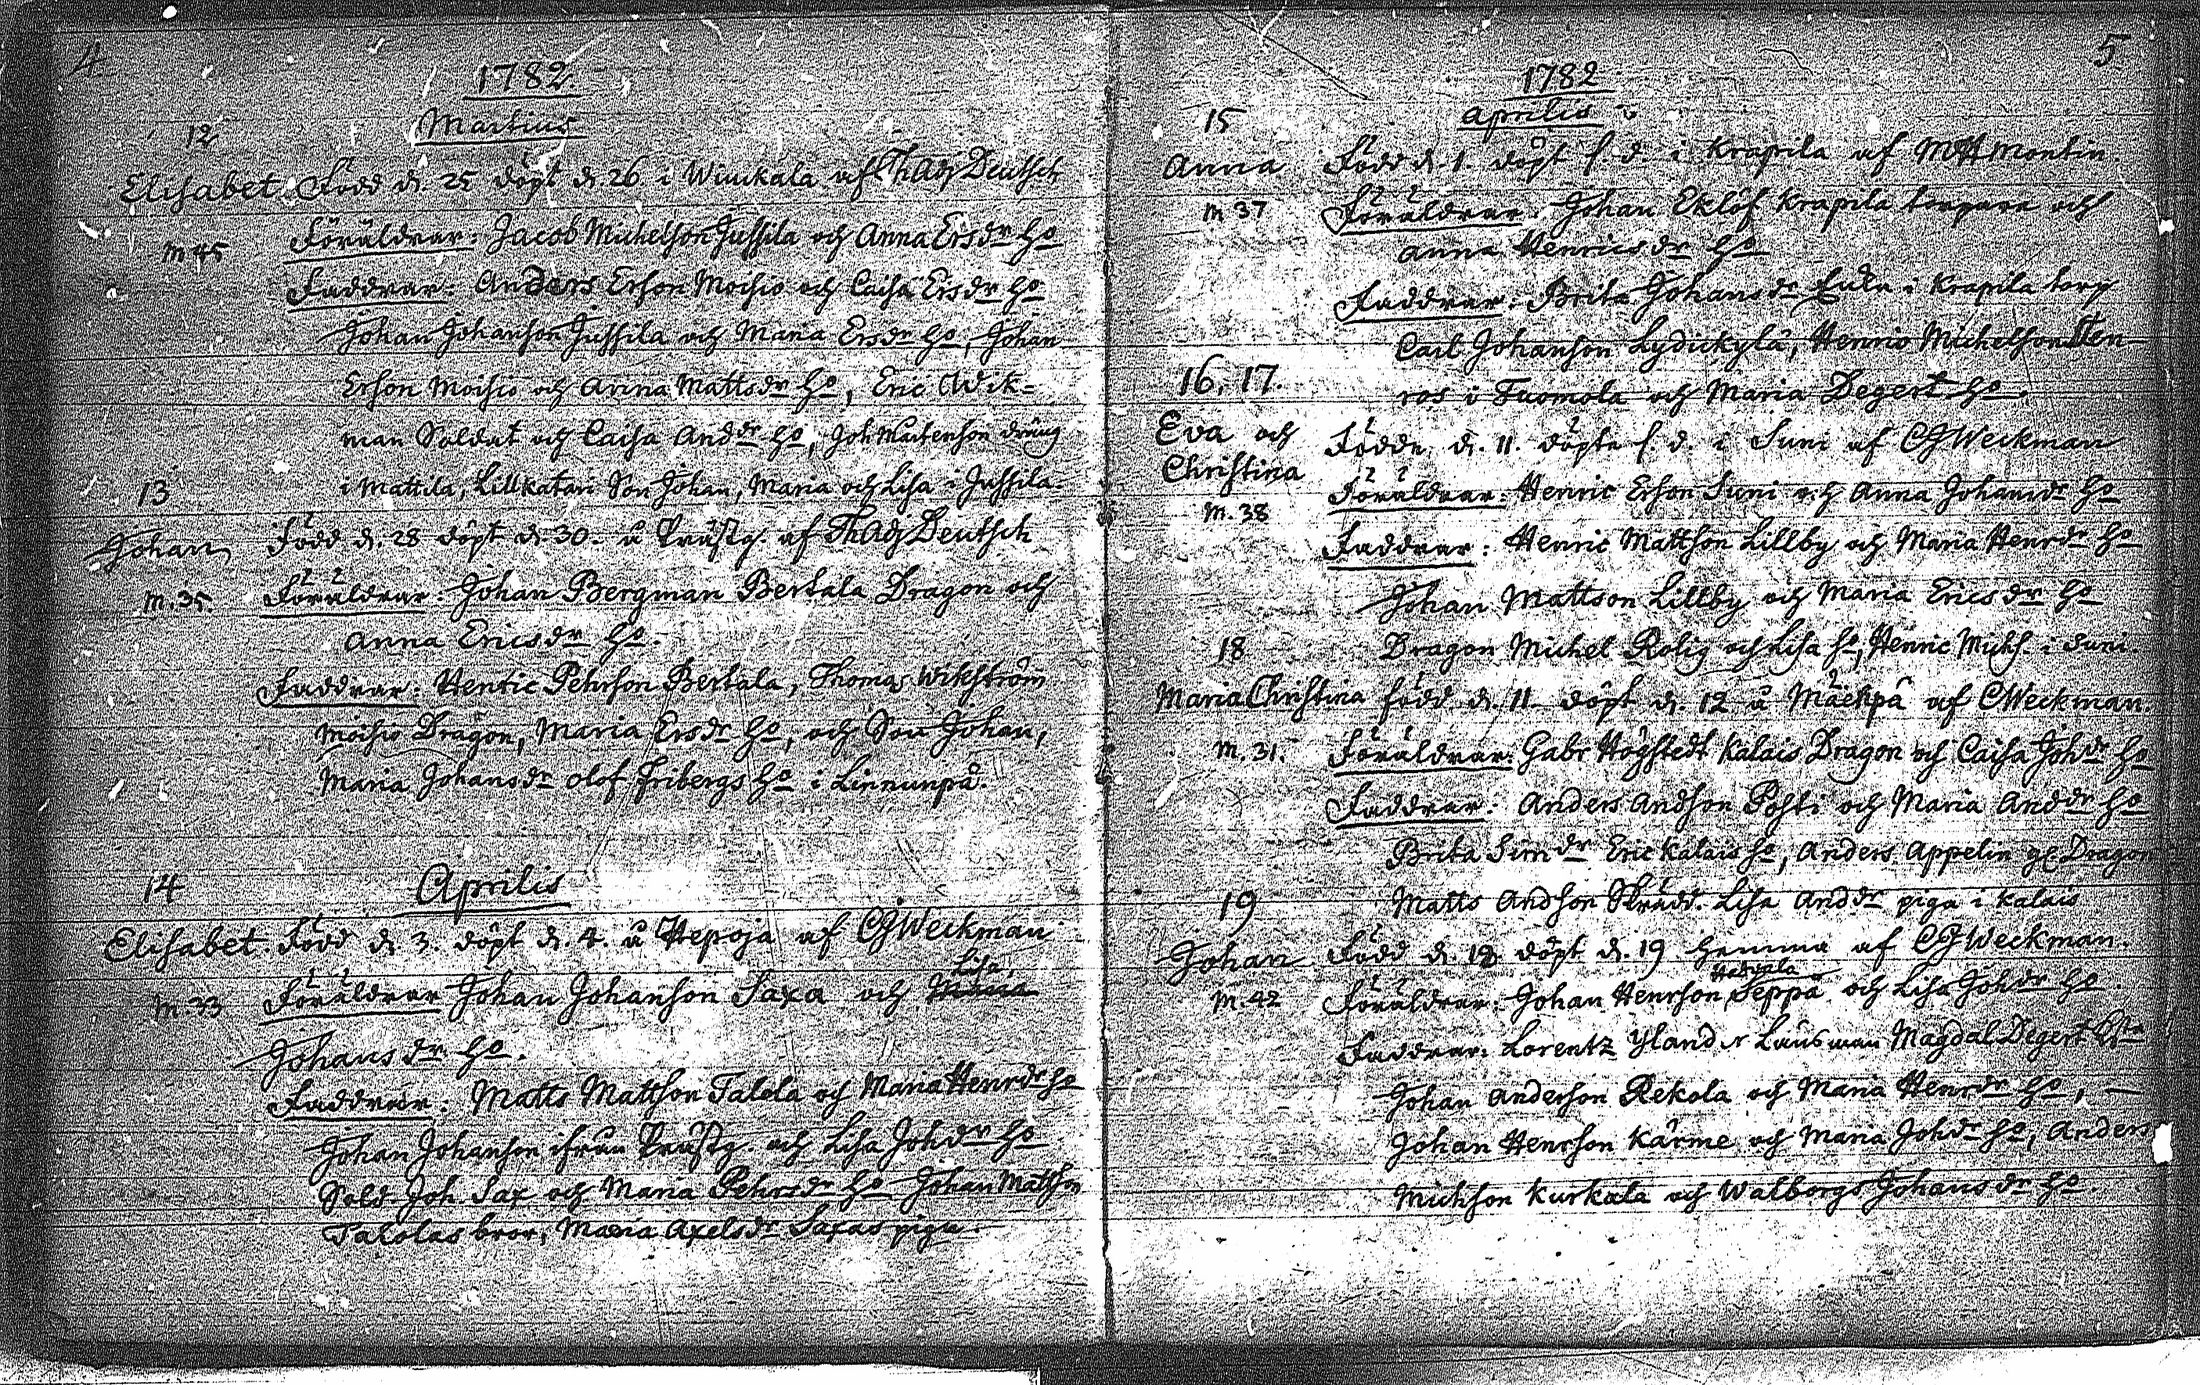 4
1782.
Martius
12
Elisabet. Född d. 25 döpt d. 26 i Wiuckala af Th Adj Deutsch
m 45 Föräldrar: Jacob Michelson Jussila och Anna Ersdr ho
Faddrar: Anders Erson Moisio och Caisa Ersdr ho
Johan Johanson Jussila och Maria Ersdr ho, Johan
Erson Moisio och Anna Mattsdr ho, Eric Wik=
man Soldat och Caisa Anddr ho, Joh Mårtenson dräng
i Mattila, Lillkatari Son Johan, Maria och Lisa i Jussila.
13
Johan Född d. 28 döpt d. 30. å Prästg. af Th Adj Deutsch
m. 35. Föräldrar: Johan Bergman Bertala Dragon och
Anna Ericsdr ho.
Faddrar: Henric Pehrson Bertala, Thomas Wikström
Moisio Dragon, Maria Ersdr ho, och Son Johan,
Maria Johansdr Olof Fribergs ho i Linnunpä.
14
Aprilis
Elisabet. Född d. 3. döpt d. 4. å Hepoja af CJ Weckman
m. 33 Föräldrar Johan Johanson Saxa och Maria Lisa,
Johansdr ho.
Faddrar: Matts Mattson Talola och Maria Henrdr ho
Johan Johanson ifrån Prästg. och Lisa Johdr ho
Sold. Joh. Sax och Maria Pehrsdr ho Johan Mattson
Talolas bror, Maria Axelsdr Saxas piga.
5
1782
Aprilis
15
Anna Född d. 1. döpt s. d. i Krapila af M H Montin.
m 37 Föräldrar: Johan Eklöf Krapila torpare och
Anna Henricsdr ho
Faddrar: Brita Johansdr Enka i Krapila torp
Carl Johanson Lydickylä, Henric Michelson Sten-
ros i Tuomola och Maria Degert ho.
16, 17.
Eva och Christina Födde, d. 11. döpte s. d. i Suni af CJ Weckman
m. 38 Föräldrar: Henric Erson Suni och Anna Johansdr ho
Faddrar: Henric Mattson Lillby och Maria Henrdr ho
Johan Mattson Lillby och Maria Ericsdr ho
Dragon Michel Rolig och Lisa ho, Henric Michs. i Suni.
18
Maria Christina född d. 11. döpt d. 12 å Mäenpä af C Weckman.
m. 31. Föräldrar: Gabr Högstedt Kalais Dragon och Caisa Johdr ho
Faddrar: Anders Andson Pohti och Maria Anddr ho
Brita Simdr Eric Kalais ho, Anders Appelin gl Dragon
Matts Andson Skrädd. Lisa Anddr piga i Kalais
19
Johan Född d. 18 döpt d. 19 hemma af CJ Weckman.
m. 42 Föräldrar: Johan Henrson Seppä och Lisa Johdr ho.
Faddrar: Lorentz Ylander Länsman Magdal Degert
Johan Anderson Rekola och Maria Henrdr ho, —
Johan Henrson Kärme och Maria Johdr ho, Anders
Michson Kurkala och Walborgs Johansdr ho.